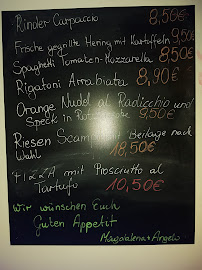 Rinder Carpaccio 8,50€
Frische gegrillte Hering mit Kartoffeln 9,50€
Spaghetti Tomaten-Mozzarella 8,50€
Rigatoni Arrabiata 8,90€
Orange Nudel al Radicchio und
Speck in 9,50€
Riesen Scampi mit Beilage nach
Wahl 18,50€
PIZZA mit Prosciutto al
Tartufo 10,50€
Wir wünschen Euch
Guten Appetit
Magdalena + Angelo